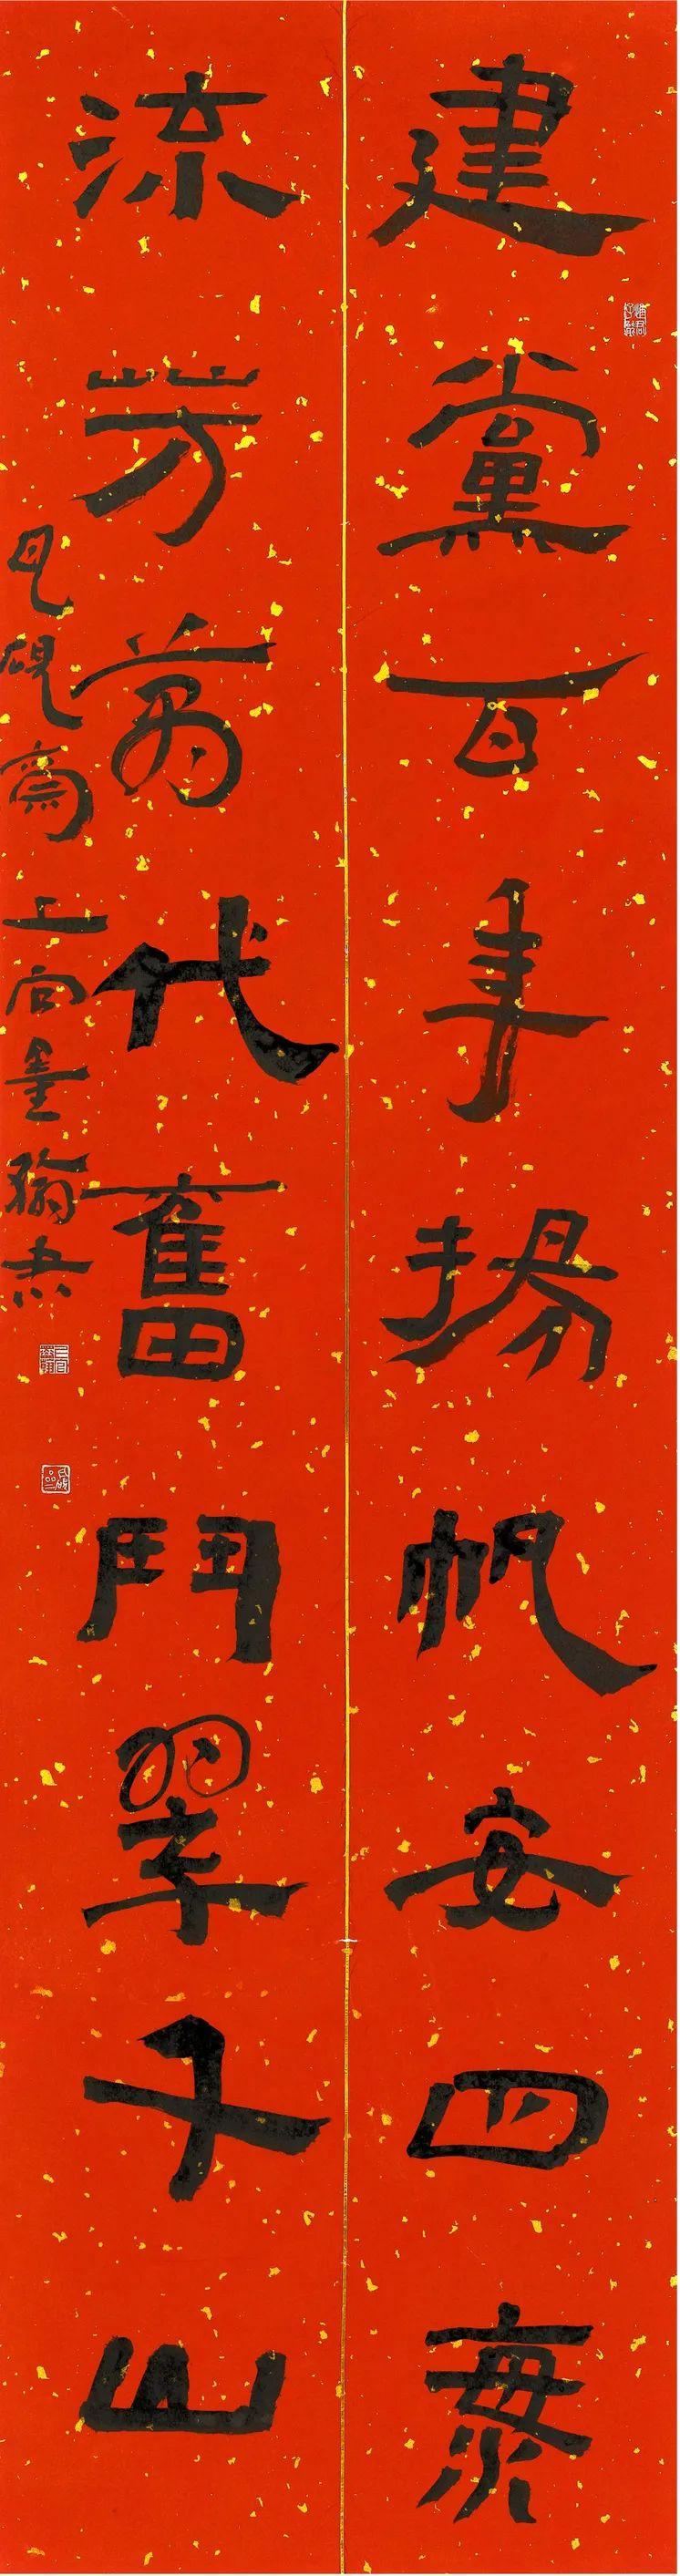 建黨百年揚帆安四海
流芳萬代奮鬥翠千山
硯齋上官墨翰